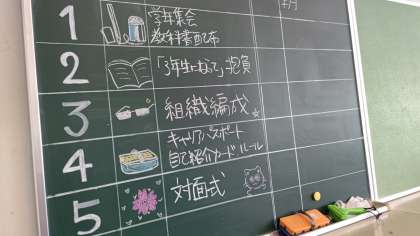 1 学年集会
教科書配布
2 「3年生になって」抱負
3 組織編成
4 キャリアパスポート
自己紹介カード ルール
5 対面式